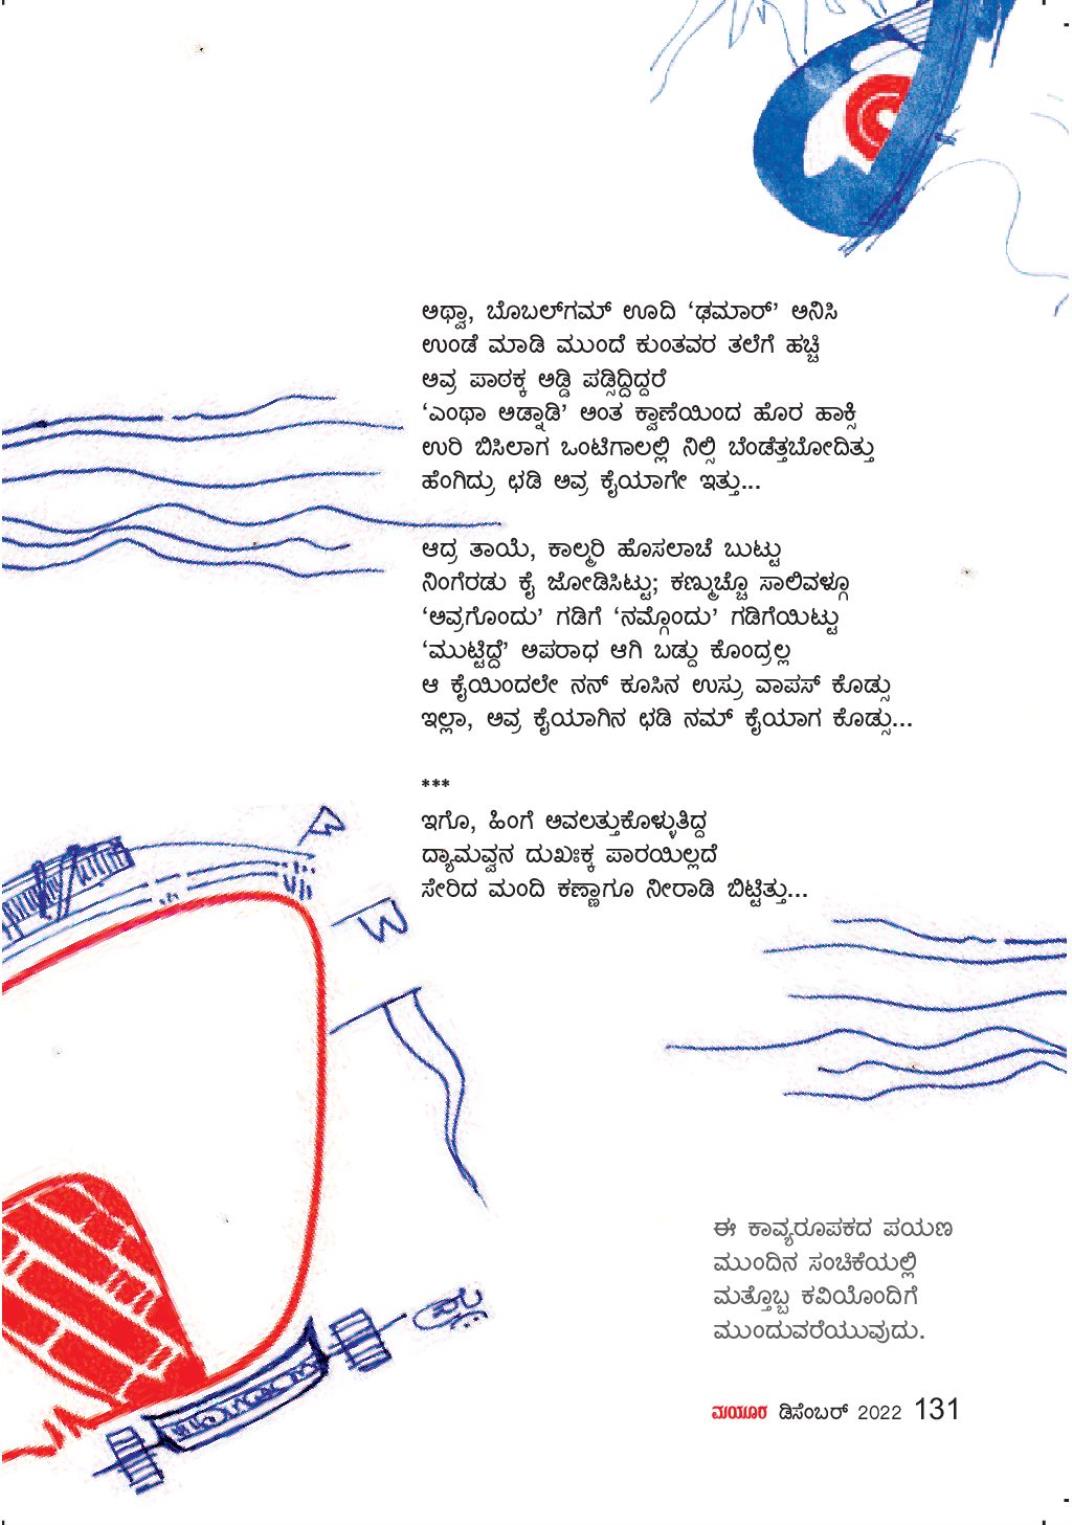 ಅಥ್ವಾ, ಬೊಬಲ್‌ಗಮ್ ಊದಿ ‘ಢಮಾರ್’ ಅನಿಸಿ
ಉಂಡೆ ಮಾಡಿ ಮುಂದೆ ಕುಂತವರ ತಲೆಗೆ ಹಚ್ಚಿ
ಅವ್ರ ಪಾಠಕ್ಕ ಅಡ್ಡಿ ಪಡ್ಸಿದ್ದಿದ್ದರೆ
‘ಎಂಥಾ ಅಡ್ನಾಡಿ’ ಅಂತ ಕ್ವಾಣೆಯಿಂದ ಹೊರ ಹಾಕ್ಸಿ
ಉರಿ ಬಿಸಿಲಾಗ ಒಂಟಿಗಾಲಲ್ಲಿ ನಿಲ್ಸಿ ಬೆಂಡೆತ್ತಬೋದಿತ್ತು
ಹೆಂಗಿದ್ರು ಛಡಿ ಅವ್ರ ಕೈಯಾಗೇ ಇತ್ತು...
ಆದ್ರ ತಾಯೆ, ಕಾಲ್ಮರಿ ಹೊಸಲಾಚೆ ಬುಟ್ಟು
ನಿಂಗೆರಡು ಕೈ ಜೋಡಿಸಿಟ್ಟು; ಕಣ್ಮುಚ್ಚೊ ಸಾಲಿವಳ್ಗೂ
‘ಅವ್ರಗೊಂದು’ ಗಡಿಗೆ ‘ನಮ್ಗೊಂದು’ ಗಡಿಗೆಯಿಟ್ಟು
‘ಮುಟ್ಟಿದ್ದೆ’ ಅಪರಾಧ ಆಗಿ ಬಡ್ದು ಕೊಂದ್ರಲ್ಲ
ಆ ಕೈಯಿಂದಲೇ ನನ್ ಕೂಸಿನ ಉಸ್ರು ವಾಪಸ್ ಕೊಡ್ಸು
ಇಲ್ಲಾ, ಅವ್ರ ಕೈಯಾಗಿನ ಛಡಿ ನಮ್ ಕೈಯಾಗ ಕೊಡ್ಸು...
***
ಇಗೊ, ಹಿಂಗೆ ಅವಲತ್ತುಕೊಳ್ಳುತಿದ್ದ
ದ್ಯಾಮವ್ವನ ದುಖಃಕ್ಕ ಪಾರಯಿಲ್ಲದೆ
ಸೇರಿದ ಮಂದಿ ಕಣ್ಣಾಗೂ ನೀರಾಡಿ ಬಿಟ್ಟಿತ್ತು...
ಈ ಕಾವ್ಯರೂಪಕದ ಪಯಣ
ಮುಂದಿನ ಸಂಚಿಕೆಯಲ್ಲಿ
ಮತ್ತೊಬ್ಬ ಕವಿಯೊಂದಿಗೆ
ಮುಂದುವರೆಯುವುದು.
ಮಯೂರ ಡಿಸೆಂಬರ್ 2022 131